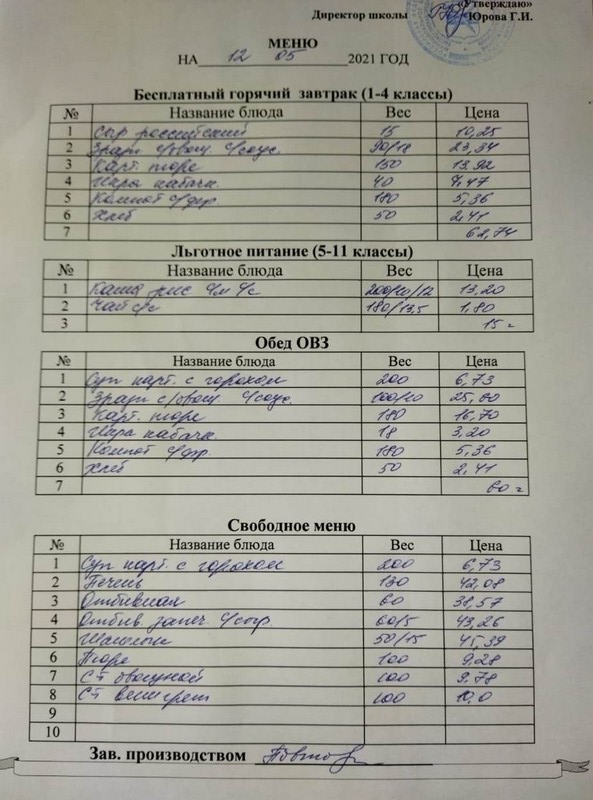 «Утверждаю»
Директор школы Юрова Г.И.
МЕНЮ
НА 12 05 2021 ГОД
Бесплатный горячий завтрак (1-4 классы)
№ Название блюда Вес Цена
1 Сыр российский 15 10,25
2 Зразы с/овощ. с/соус. 90/12 23,34
3 Карт. пюре 150 13.92
4 Икра кабачк. 40 7,47
5 Компот с/фр 180 5,36
6 Хлеб 50 2,41
7 62,74
Льготное питание (5-11 классы)
№ Название блюда Вес Цена
1 Каша рис с/м с/с 200/10/12 13,20
2 Чай с/с 180/13,5 1,80
3 15 =
Обед ОВЗ
№ Название блюда Вес Цена
1 Суп карт. с горохом 200 6,73
2 Зразы с/овощ с/соус. 100/10 25,60
3 Карт. пюре 180 16,70
4 Икра кабачк. 18 3,20
5 Компот с/фр. 180 5,36
6 Хлеб 50 2,41
7 60 =
Свободное меню
№ Название блюда Вес Цена
1 Суп карт. с горохом 200 6,73
2 Печень 100 42,08
3 Отбивная 60 38,57
4 Отбив. запеч с/сыр. 60/5 43,26
5 Шашлык 50/15 45,39
6 Пюре 100 9.28
7 С-т овощной 100 9,78
8 С-т винегрет 100 10,0
9
10
Зав. производством